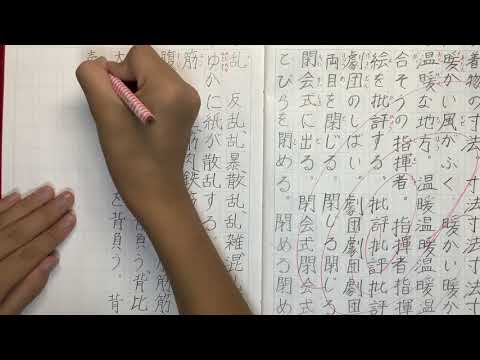 着物の寸法 寸法寸法
暖かい風がふく 暖かい暖か
温暖な地方。温暖温暖温
合そうの指揮者。指揮者指揮
絵を批評する。批評批評批評
劇団のしばい。劇団劇団劇団
両目を閉じる。閉じる閉じる
閉会式に出る。閉会式閉会式
とびらを閉める。閉める閉める
乱 反乱乱暴散乱乱雑混
ゆかに紙が散乱する
筋 筋肉鉄筋
腹 筋筋
背負う 背比
を背負う。背